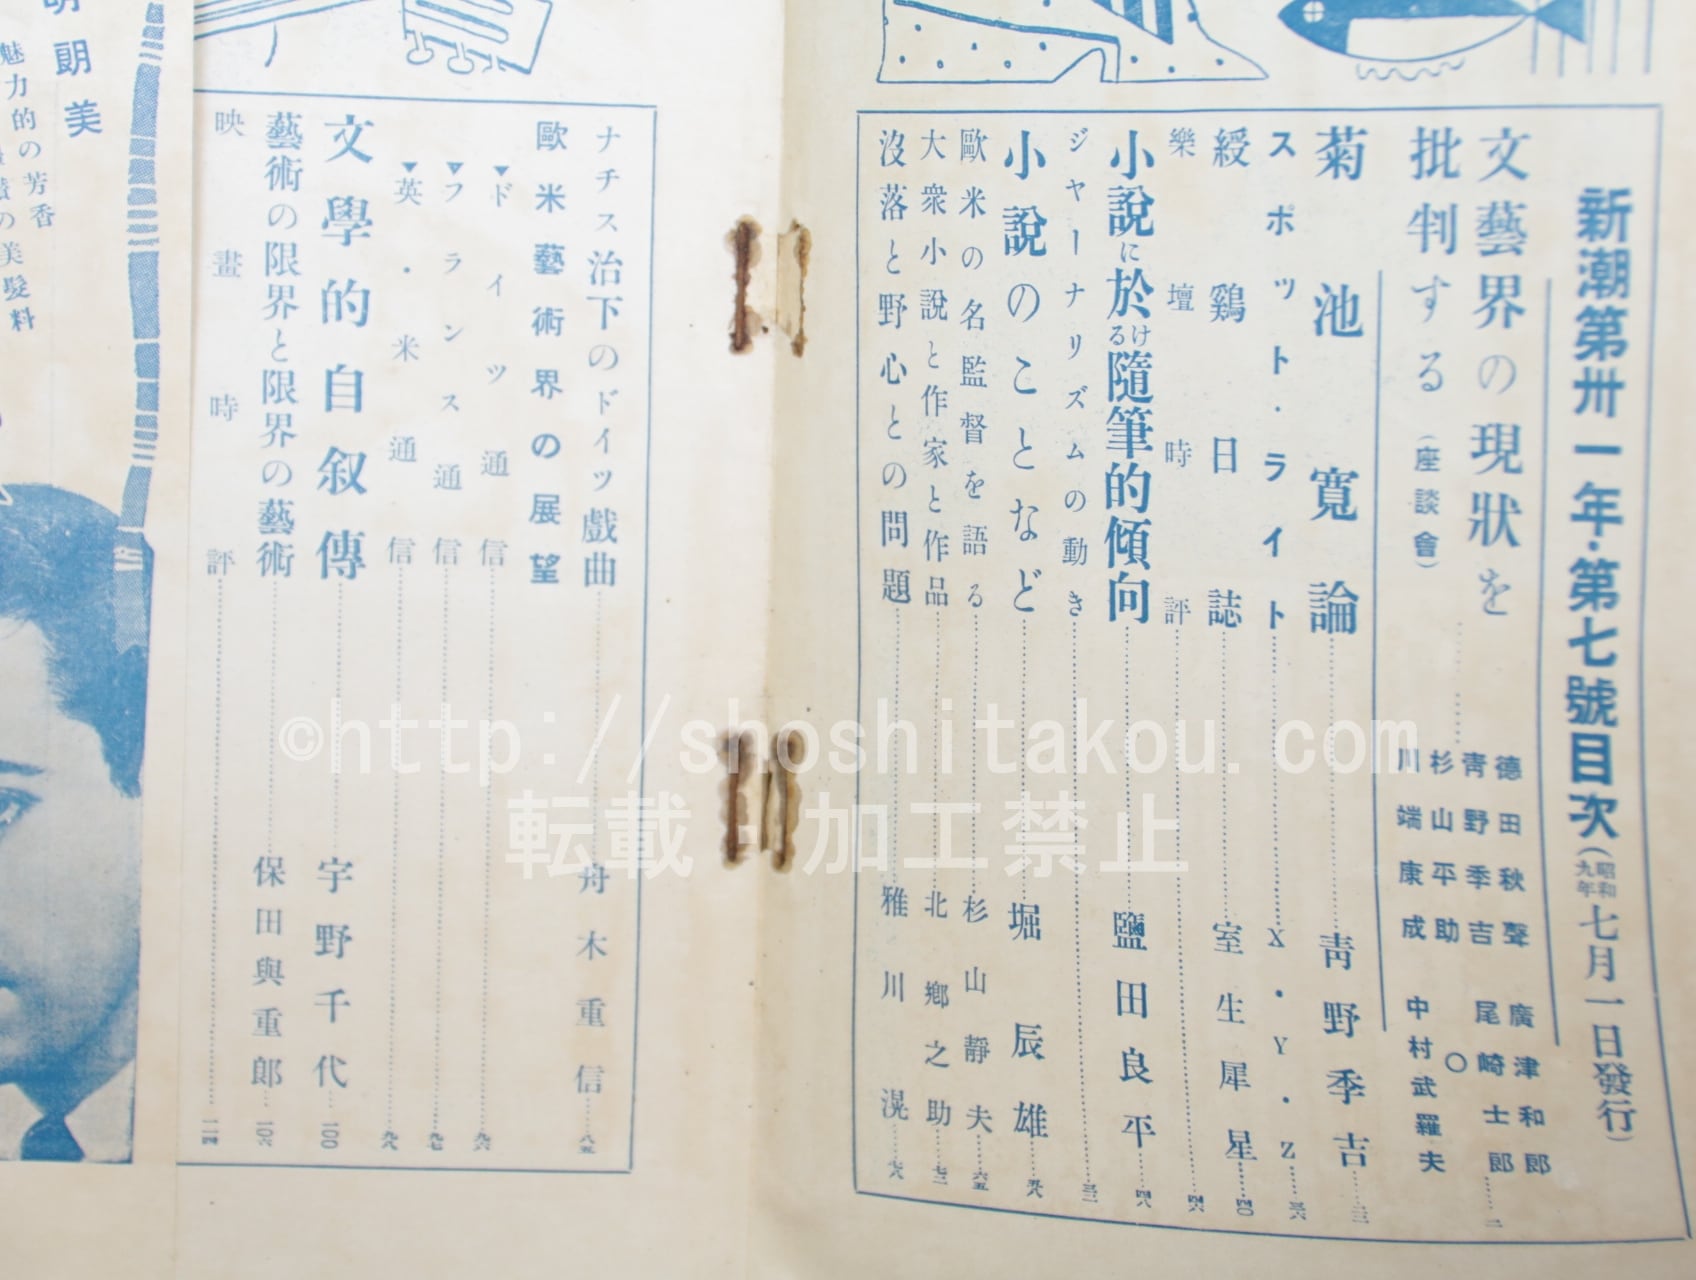 新潮第卅一年・第七號目次(昭和九年七月一日發行)
文藝界の現狀を
批判する(座談會)
德田秋聲 廣津和郎
靑野季吉 尾崎士郎
杉山平助 〇
川端康成 中村武羅夫……一
菊池寬論……靑野季吉
スポット・ライト……X・Y・Z……三六
綬鷄日誌……室生犀星……四〇
樂壇時評……四六
小說に於ける隨筆的傾向……鹽田良平……四八
ジャーナリズムの動き
小說のことなど……堀辰雄……五八
歐米の名監督を語る……杉山靜夫……六五
大衆小說と作家と作品……北鄕之助……七二
沒落と野心との問題……雅川滉……七八
ナチス治下のドイツ戲曲……舟木重信……八五
歐米藝術界の展望
▼ドイツ通信……九六
▼フランス通信……九七
▼英・米通信……九八
文學的自叙傳……宇野千代……一〇〇
藝術の限界と限界の藝術……保田與重郎……一〇六
映畫時評……一一四
明朗美
魅力的の芳香
の美髮料
©http://shoshitakou.com
転載・加工禁止